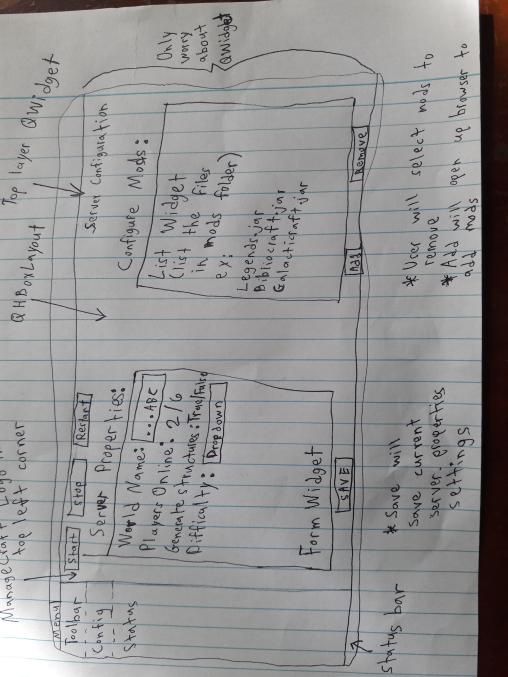 ManageCraft Logo in
top left corner
QHBoxLayout
Top layer QWidget
Only
wory
about
QWidget
Menu
Toolbar
Config
Status
Start
Stop
Restart
Server Configuration
Server Properties:
World Name: ...ABC
Players Online: 2/6
Generate structures: True/False
Difficalty: Dropdown
Form Widget
SAVE
Configure Mods:
List Widget
(list the files
in mods folder)
ex:
Legends.jar
Bibliocraft.jar
Galacticraft.jar
Add
Remove
status bar
* Save will
save current
server.properties
settings
* User will select mods to
remove
* Add will open up browser to
add mods